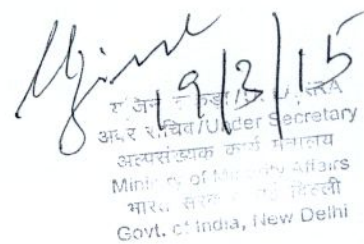 19/3/15
अवर सचिव/Under Secretary
अल्पसंख्यक कार्य मंत्रालय
Ministry of Minority Affairs
भारत सरकार नई दिल्ली
Govt. of India, New Delhi